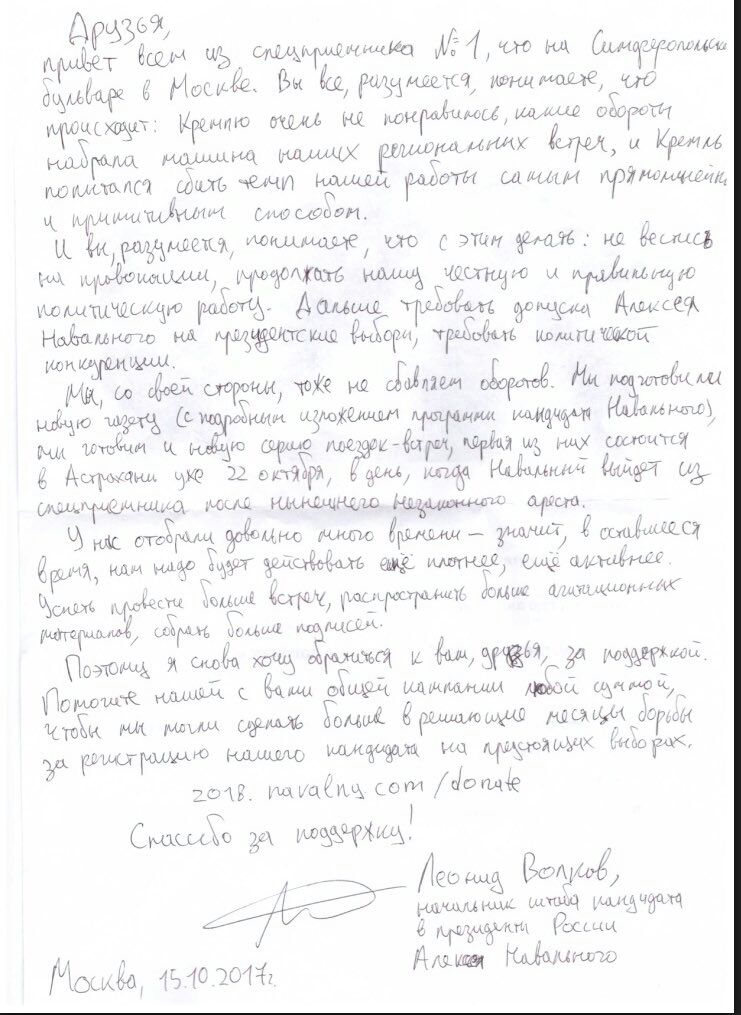 Друзья,
привет всем из спецприемника №1, что на Симферопольск
бульваре в Москве. Вы все, разумеется, понимаете, что
происходит: Кремлю очень не понравилось, какие обороты
набрала машина наших региональных встреч, и Кремль
попытался сбить темп нашей работы самым прямолинейн
и примитивным способом.
И вы, разумеется, понимаете, что с этим делать: не вестись
на провокации, продолжать нашу честную и правильную
политическую работу. Дальше требовать допуска Алексея
Навального на президентские выборы, требовать политической
конкуренции.
Мы, со своей стороны, тоже не сбавляем оборотов. Мы подготовили
новую газету (с подробным изложением программы кандидата Навального),
мы готовим и новую серию поездок-встреч, первая из них состоится
в Астрахани уже 22 октября, в день, когда Навальный выйдет из
спецприемника после нынешнего незаконного ареста.
У нас отобрали довольно много времени – значит, в оставшееся
время, нам надо будет действовать ещё плотнее, ещё активнее.
Успеть провести больше встреч, распространить больше агитационных
материалов, собрать больше подписей.
Поэтому я снова хочу обратиться к вам, друзья, за поддержкой.
Помогите нашей с вами общей кампании любой суммой,
чтобы мы могли сделать больше в решающие месяцы борьбы
за регистрацию нашего кандидата на предстоящих выборах.
2018.navalny.com/donate
Спасибо за поддержку!
Леонид Волков,
начальник штаба кандидата
в президенты России
Алексея Навального
Москва, 15.10.2017г.